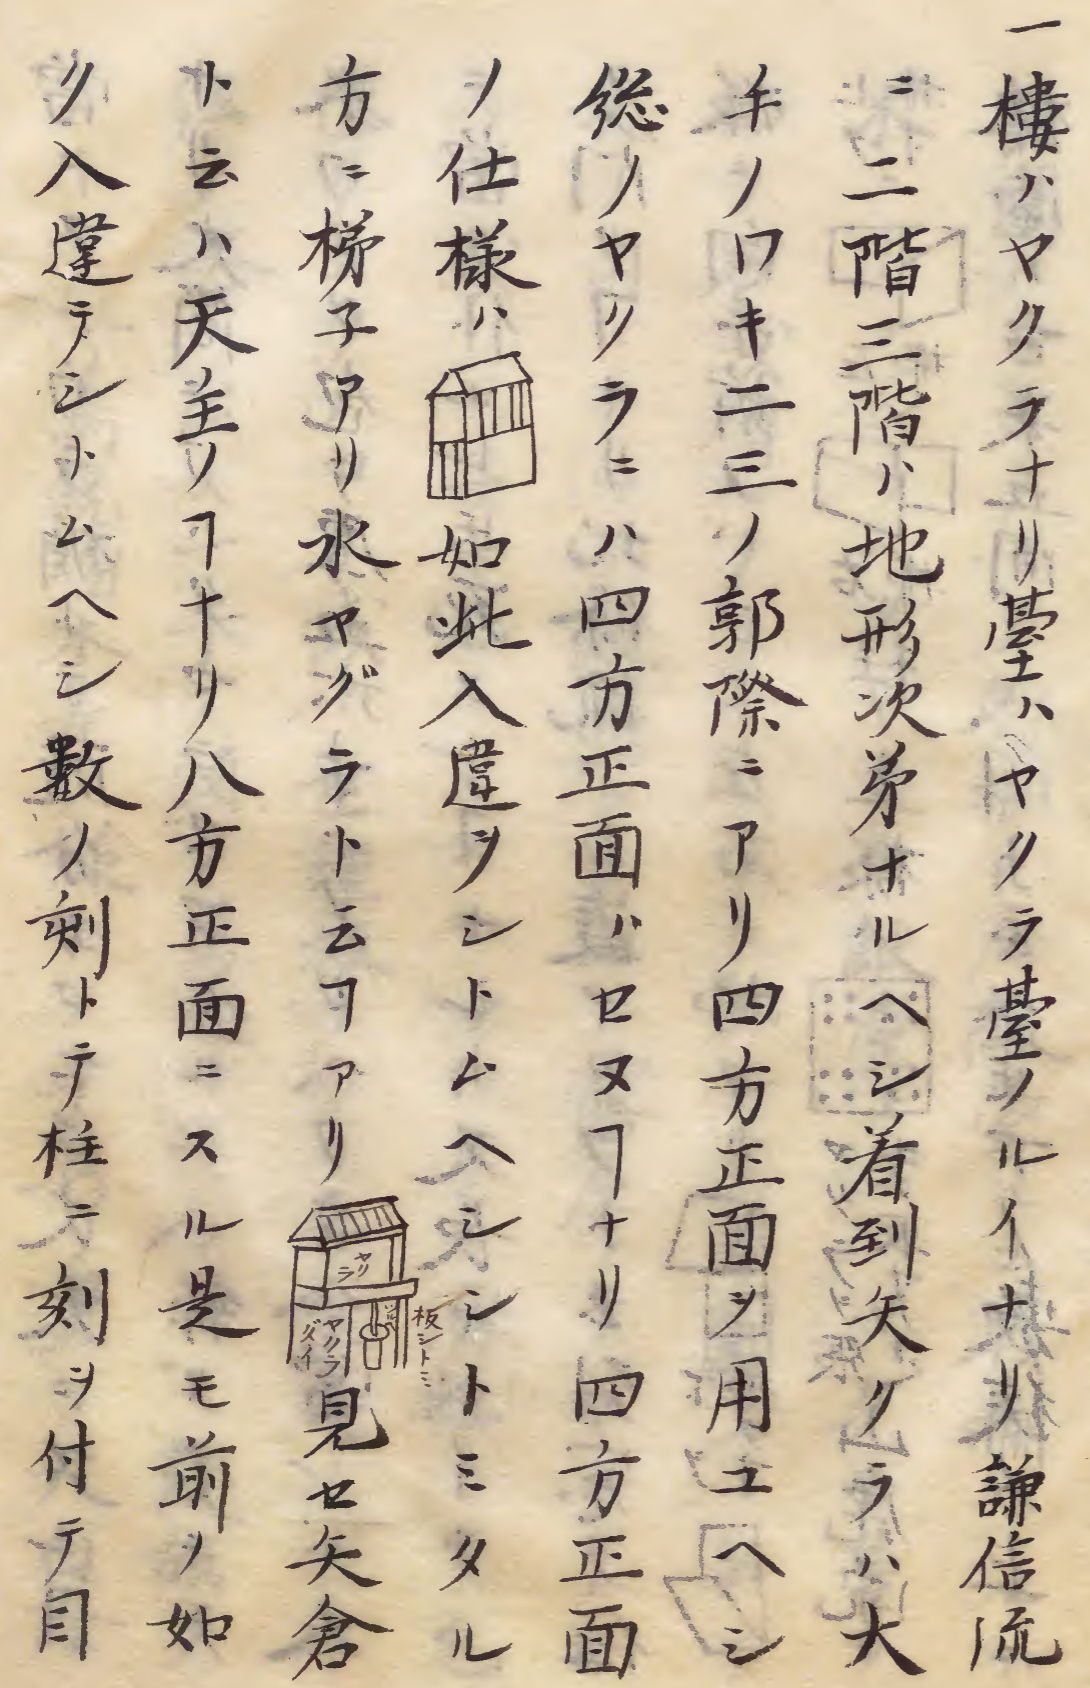 一樓ハヤクラナリ臺ハヤクラ臺ノルイナリ謙信流
ニ二階三階ハ地形次第ナルヘシ着到矢クラハ大
手ノワキ二三ノ郭際ニアリ四方正面ヲ用ユヘシ
総ノヤクラニハ四方正面ハセヌヿナリ四方正面
ノ仕様ハ如此入違ヲシトムヘシシトミタル
方ニ梯子アリ水ヤグラト云ヿアリ見セ矢倉
ヤクラ
ヤクラダイ
板シトミ
ト云ハ天主ノヿナリ八方正面ニスル是モ前ノ如
ク入違テシトムヘシ數ノ刻トテ柱ニ刻ヲ付テ目